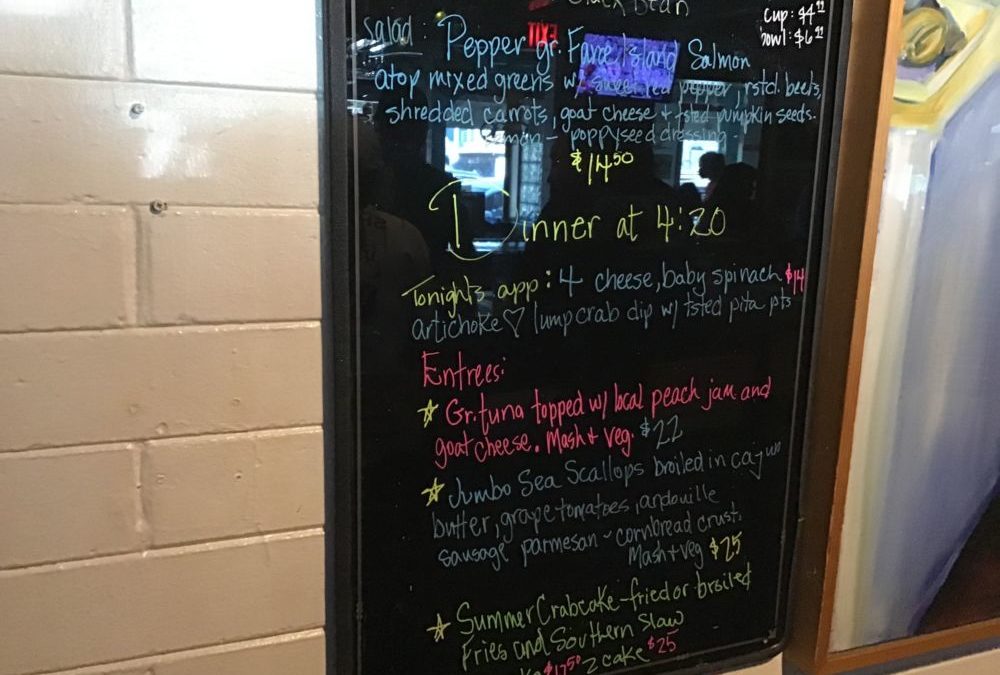 Black Bean
cup: $4.99
bowl: $6.99
Salad: Pepper gr. Faroe Island Salmon
atop mixed greens w/ sweet red pepper, rstd. beets,
shredded carrots, goat cheese + tsted pumpkin seeds.
- poppyseed dressing -
$14.50
Dinner at 4:20
Tonight's app: 4 cheese, baby spinach $14
artichoke ♡ lump crab dip w/ tsted pita pts
Entrees:
☆ Gr. tuna topped w/ local peach jam and
goat cheese. Mash + veg. $22
☆ Jumbo Sea Scallops broiled in cajun
butter, grape tomatoes, andouille
sausage parmesan - cornbread crust.
Mash + veg $25
☆ Summer Crabcake - fried or broiled
Fries and Southern Slaw
$17.50 2 cake $25